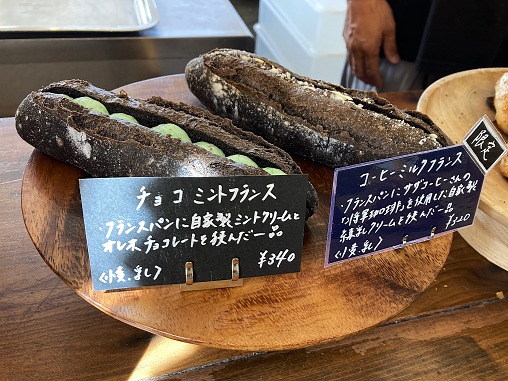 チョコミントフランス
・フランスパンに自家製ミントクリームと
オレ木チョコレートを挟んだ一品
¥340
<小麦、乳>
限定
コーヒーミルクフランス
・フランスパンにサザコーヒーさんの
「将軍珈琲」を使用した自家製
練乳クリームを挟んだ一品
<小麦、乳>